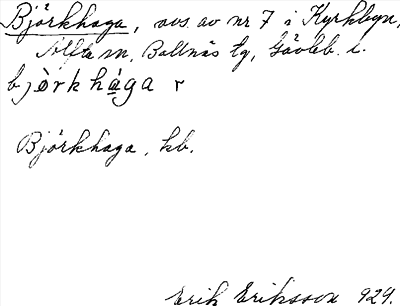 Björkhaga, avs. av nr 7 i Kyrkbyn,
Alfta sn, Bollnäs tg, Gävleb. l.
bjòrkhága r
Björkhaga, kb.
Erik Eriksson 929.